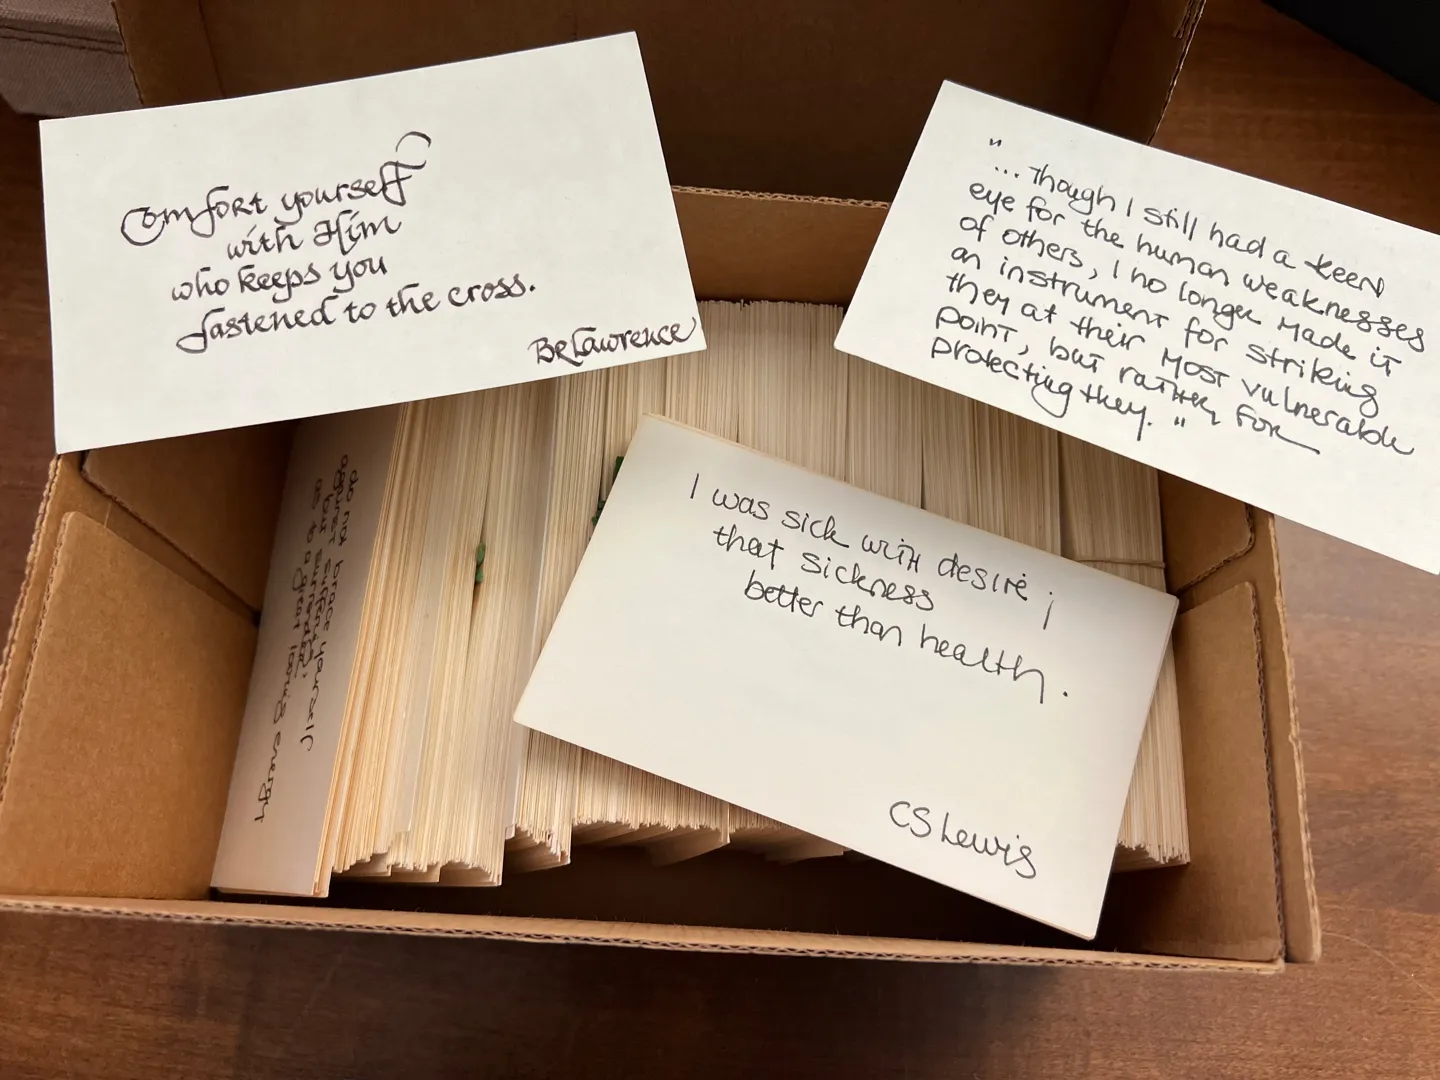 Comfort yourself
with Him
who keeps you
fastened to the cross.
Br Lawrence
"... Though I still had a keen
eye for the human weaknesses
of others, I no longer made it
an instrument for striking
they at their most vulnerable
point, but rather for
protecting they."
I was sick with desire;
that sickness
better than health.
CS Lewis
do not brace yourself
against suffering
but surrender,
as to a great loving energy